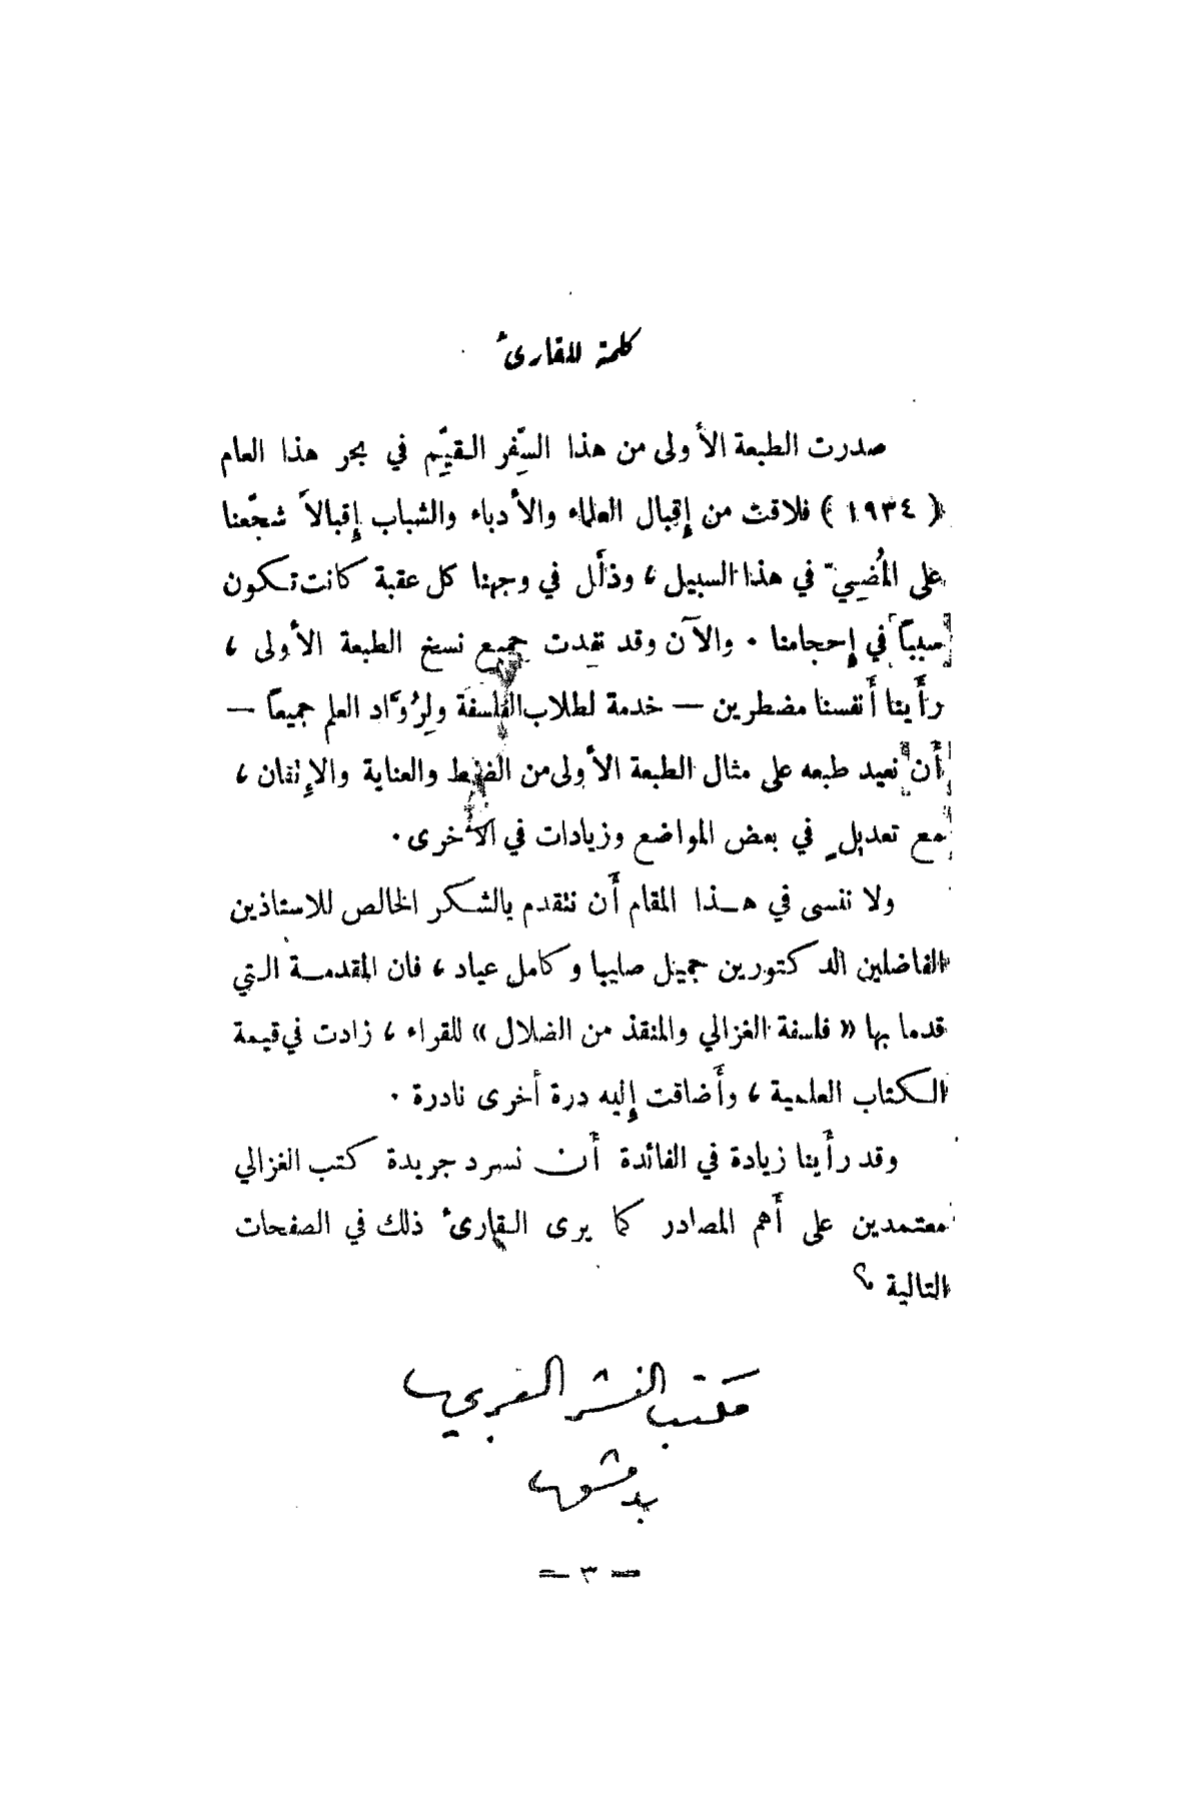 كلمة للقارئ
صدرت الطبعة الأولى من هذا السِّفر القيِّم في بحر هذا العام
( ١٩٣٤ ) فلاقت من إقبال العلماء والأدباء والشباب إقبالاً شجّعنا
على المُضِيّ في هذا السبيل ، وذلَّل في وجهنا كل عقبة كانت تكون
سبباً في إحجامنا . والآن وقد نفدت جميع نسخ الطبعة الأولى ،
رأينا أنفسنا مضطرين — خدمة لطلاب الفلسفة ولِرُوَّاد العلم جميعاً —
أن نعيد طبعه على مثال الطبعة الأولى من الضبط والعناية والإتقان ،
مع تعديلٍ في بعض المواضع وزيادات في الأخرى .
ولا ننسى في هذا المقام أن نتقدم بالشكر الخالص للاستاذين
الفاضلين الدكتورين جميل صليبا وكامل عياد ، فان المقدمة التي
قدما بها « فلسفة الغزالي والمنقذ من الضلال » للقراء ، زادت في قيمة
الكتاب العلمية ، وأضافت إليه درة أخرى نادرة .
وقد رأينا زيادة في الفائدة أن نسرد جريدة كتب الغزالي
معتمدين على أهم المصادر كما يرى القارئ ذلك في الصفحات
التالية
مكتب النشر العربي
بدمشق
— ٣ —